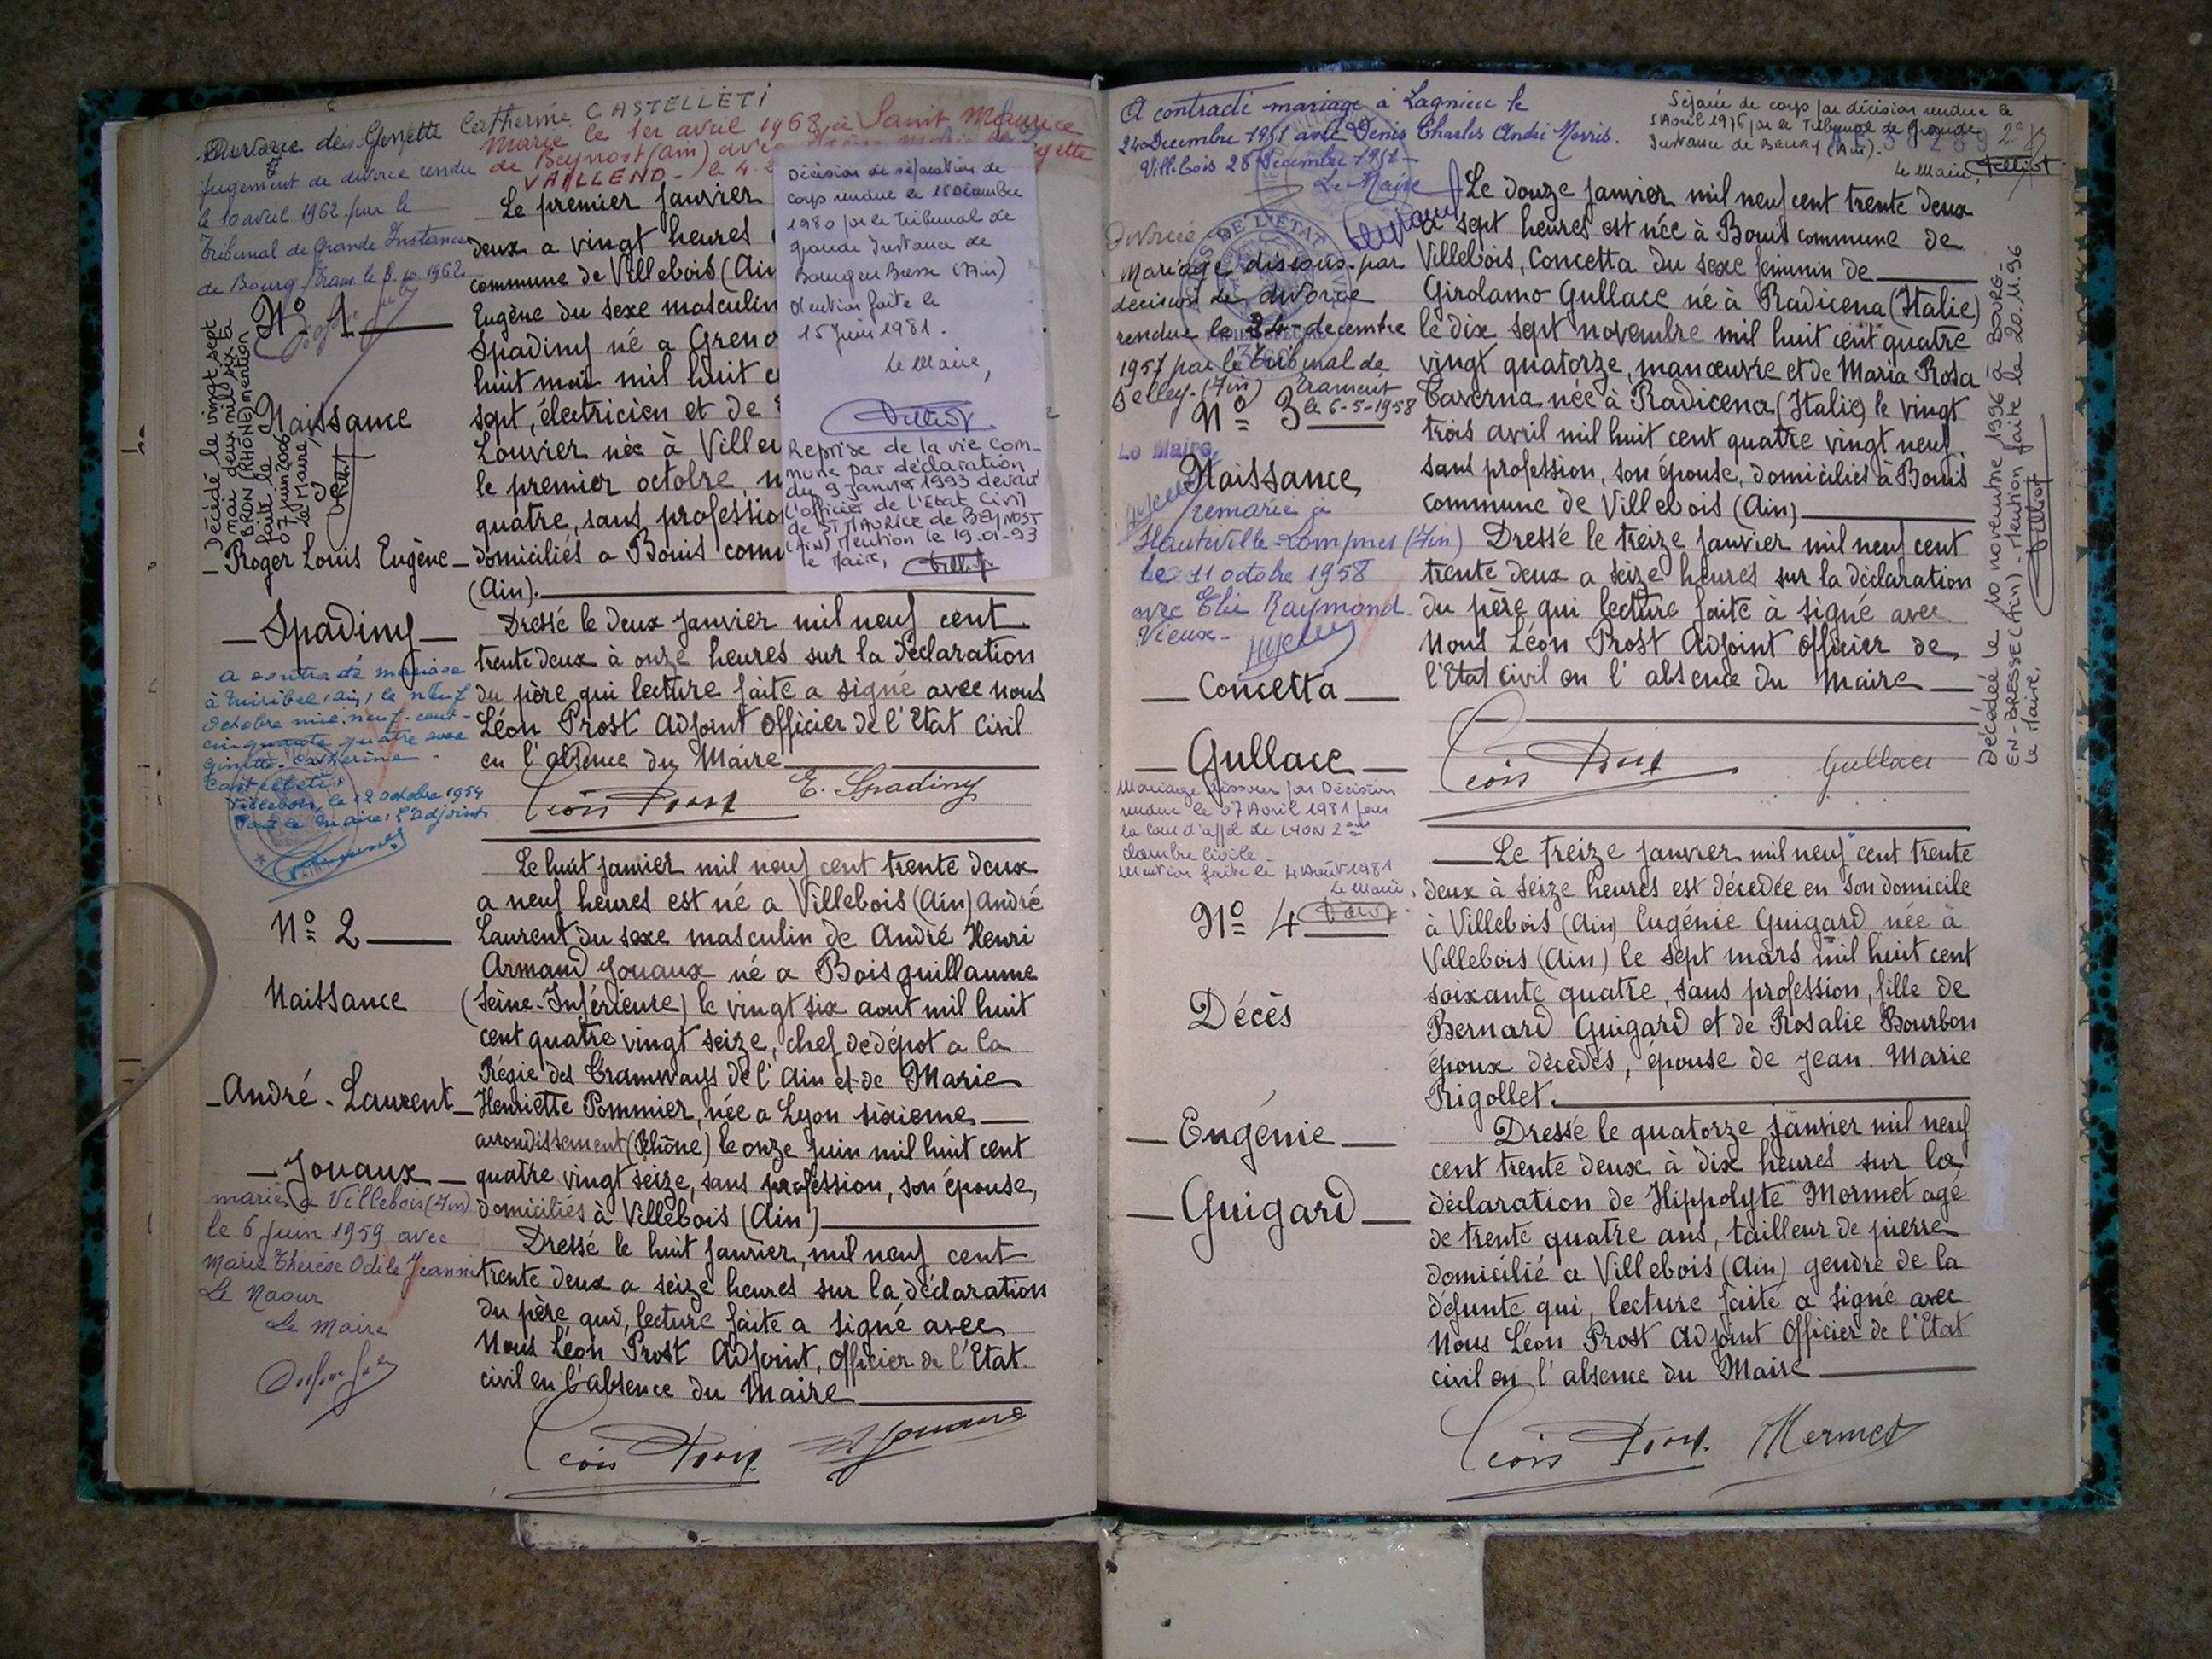 Divorcé de Ginette Catherine CASTELLETI
jugement de divorce rendu
le 10 avril 1962 par le
Tribunal de Grande Instance
de Bourg Trans. le 8.10.1962
Marié le 1er avril 1963 à Saint Maurice
de Beynost (Ain) avec
VAILLEND
Nº 1
Décédé le vingt sept
mai deux mil six à
BRON (RHÔNE) mention
faite le
07 juin 2006
le Maire,
Naissance
Roger Louis Eugène
Spadiny
a contracté mariage
à Miribel (Ain) le neuf
Octobre mil neuf cent
cinquante quatre avec
Ginette Catherine
Castelleti
Villebois, le 12 octobre 1954
Pour le Maire: l'adjoint
Le premier janvier
deux a vingt heures
commune de Villebois (Ain
Eugène du sexe masculin
Spadiny né a Greno
huit mai mil huit c
sept, électricien et de
Louvier née à Ville
le premier octobre m
quatre, sans professio
domiciliés a Bouis comm
(Ain).
Décision de séparation de
corps rendue le 15 Décembre
1980 par le Tribunal de
grande Instance de
Bourg en Bresse (Ain)
Mention faite le
15 Juin 1981.
Le Maire,
Reprise de la vie com-
mune par déclaration
du 9 janvier 1993 devant
l'officier de l'Etat Civil
de ST MAURICE de BEYNOST
(AIN) Mention le 19-01-93
le Maire,
Dressé le deux janvier mil neuf cent
trente deux à onze heures sur la déclaration
du père qui lecture faite a signé avec nous
Léon Prost Adjoint Officier de l'Etat Civil
en l'absence du Maire
Léon Prost E. Spadiny
Nº 2
Naissance
André-Laurent
Jouaux
marié à Villebois (Ain)
le 6 Juin 1959 avec
Marie Thérèse Odile Jeanne
Le Naour
Le Maire
Le huit janvier mil neuf cent trente deux
a neuf heures est né a Villebois (Ain) André
Laurent du sexe masculin de André Henri
Armand Jouaux né a Bois guillaume
(Seine-Inférieure) le vingt six aout mil huit
cent quatre vingt seize, chef de dépot a la
Régie des Tramways de l'Ain et de Marie
Henriette Pommier, née a Lyon sixieme
arrondissement (Rhône) le onze juin mil huit cent
quatre vingt seize, sans profession, son épouse,
domiciliés à Villebois (Ain)
Dressé le huit janvier, mil neuf cent
trente deux a seize heures sur la déclaration
du père qui, lecture faite a signé avec
Nous Léon Prost Adjoint, Officier de l'Etat
civil en l'absence du Maire
Léon Prost Jouaux
A contracté mariage à Lagnieu le
24 Decembre 1951 avec Denis Charles André
Villebois 28 Decembre 1951
Le Maire
Séparée de corps par décision rendue le
5 Avril 1976 par le Tribunal de Grande
Instance de BOURG (Ain).
Le Maire,
Divorcée
Mariage dissous par
décision de divorce
rendue le 24 decembre
1957 par le Tribunal de
Belley (Ain) Transcrit
le 6-5-1958
Le Maire,
Nº 3
Naissance
remariée à
Hauteville-Lompnes (Ain)
le 11 octobre 1958
avec Elie Raymond
Vieux
Concetta
Gullace
Mariage dissous par Décision
rendue le 07 Avril 1981 par
la Cour d'appel de LYON 2ème
chambre Civile
Mention faite le 4 Août 1981
Le Maire,
Le douze janvier mil neuf cent trente deux
a sept heures est née à Bouis commune de
Villebois, Concetta du sexe féminin de
Girolamo Gullace né à Radicena (Italie)
le dix sept novembre mil huit cent quatre
vingt quatorze, manœuvre et de Maria Rosa
Taverna née à Radicena (Italie) le vingt
trois avril mil huit cent quatre vingt neuf
sans profession, son épouse, domiciliés à Bouis
commune de Villebois (Ain)
Dressé le treize janvier mil neuf cent
trente deux a seize heures sur la déclaration
du père qui lecture faite à signé avec
Nous Léon Prost Adjoint Officier de
l'Etat civil en l'absence du Maire
Léon Prost Gullace
Décédée le 10 novembre 1996 à BOURG-
EN-BRESSE (Ain) - Mention faite le 20.11.96
Le Maire,
Nº 4
Décès
Eugénie
Guigard
Le treize janvier mil neuf cent trente
deux à seize heures est décedée en son domicile
à Villebois (Ain) Eugénie Guigard née à
Villebois (Ain) le sept mars mil huit cent
soixante quatre, sans profession, fille de
Bernard Guigard et de Rosalie Bourbon
époux décedés, épouse de Jean. Marie
Rigollet.
Dressé le quatorze janvier mil neuf
cent trente deux à dix heures sur la
déclaration de Hippolyte Mermet agé
de trente quatre ans, tailleur de pierre
domicilié a Villebois (Ain) gendre de la
défunte qui, lecture faite a signé avec
Nous Léon Prost Adjoint Officier de l'Etat
civil en l'absence du Maire
Léon Prost. Mermet